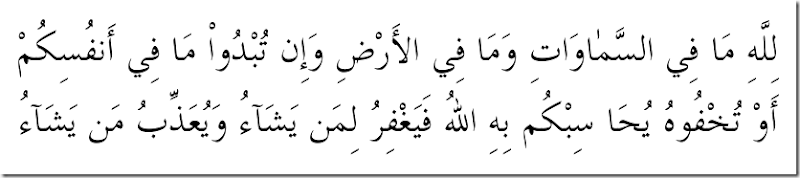 لِلَّهِ مَا فِي السَّمٰاوَاتِ وَمَا فِي الأَرْضِ وَإِن تُبْدُواْ مَا فِي أَنفُسِكُمْ
أَوْ تُخْفُوهُ يُحَا سِبْكُم بِهِ اللهُ فَيَغْفِرُ لِمَن يَشَآءُ وَيُعَذِّبُ مَن يَشَآءُ